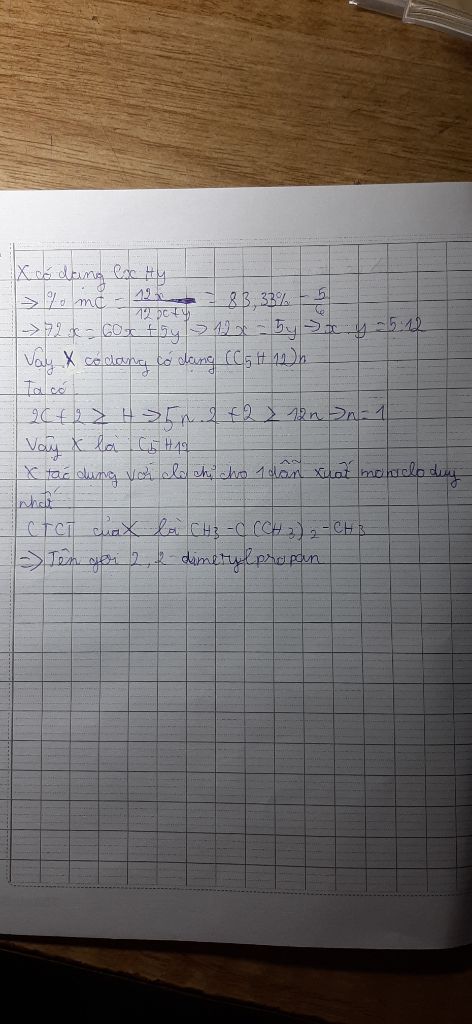 X có dạng CxHy
→ % mC = 12x / 12x+y = 83,33% = 5/6
→ 72x = 60x + 5y → 12x = 5y → x : y = 5:12
Vậy X có dạng có dạng (C5H12)n
Ta có
2C + 2 ≥ H → 5n.2 + 2 ≥ 12n → n = 1
Vậy X là C5H12
X tác dụng với clo chỉ cho 1 dẫn xuất monoclo duy
nhất
CTCT của X là CH3 - C(CH3)2 - CH3
⇒ Tên gọi 2,2-dimetylpropan